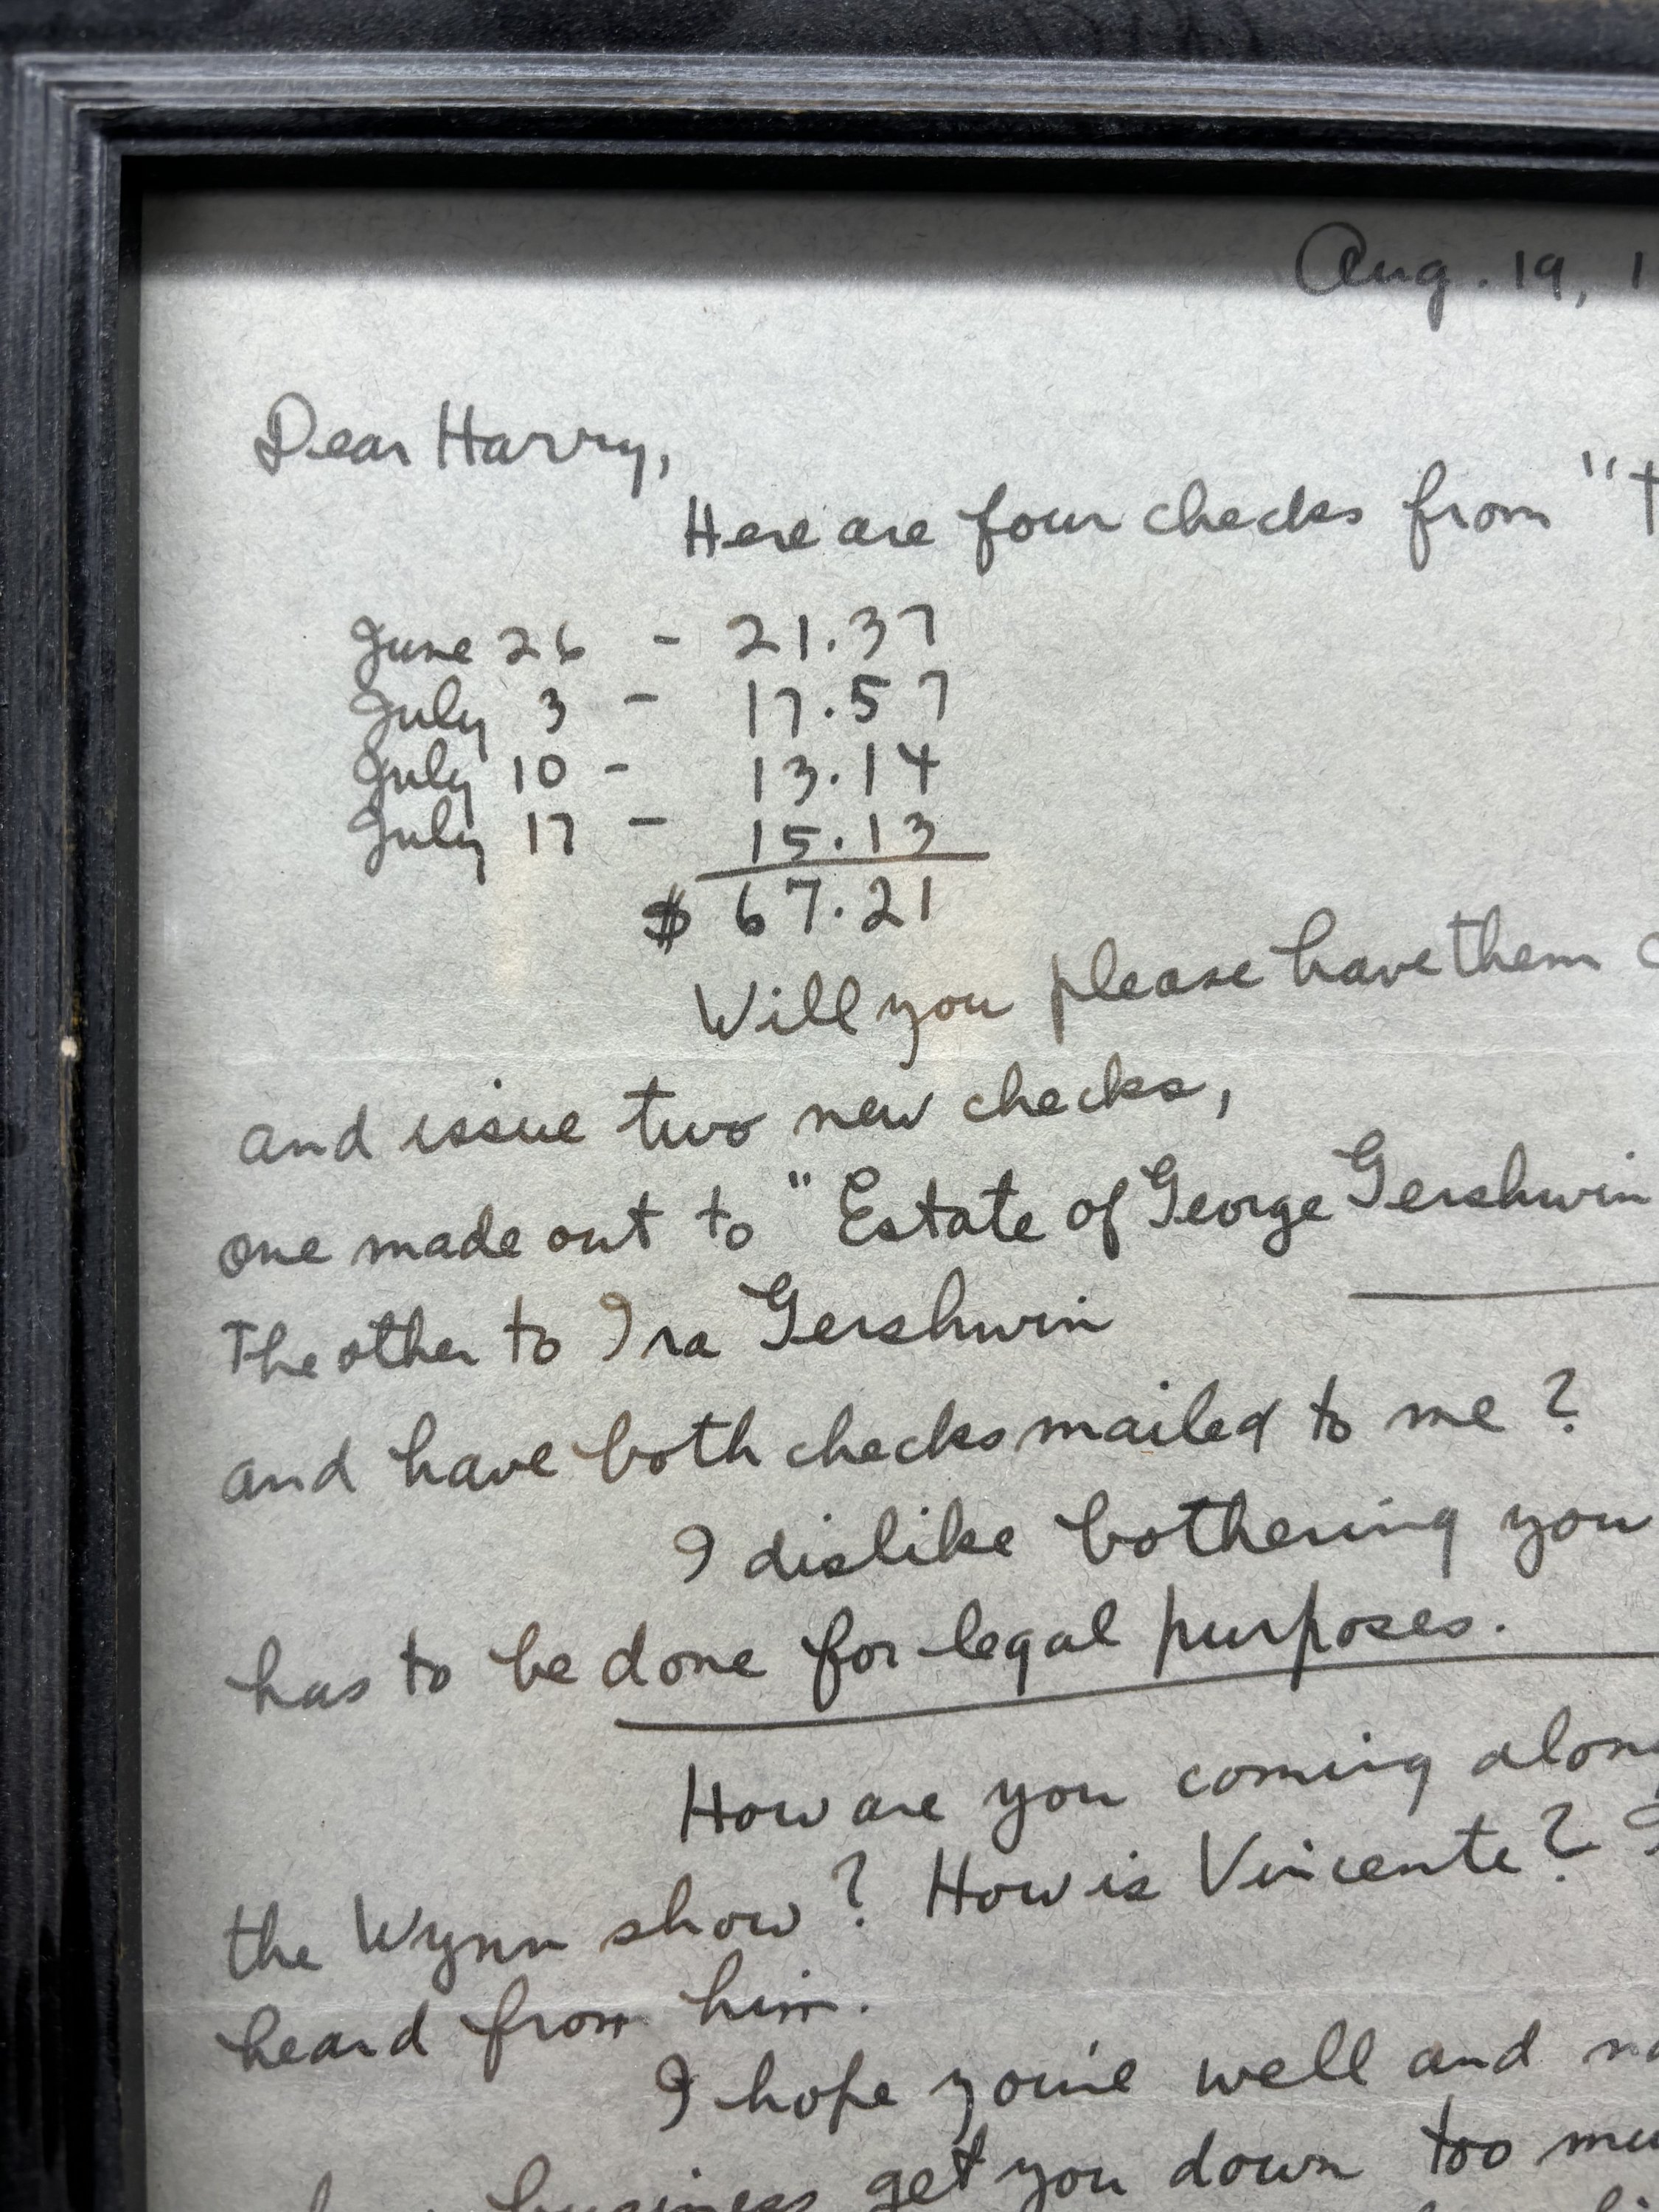 Aug. 19, 1
Dear Harry,
Here are four checks from "t
June 26 - 21.37
July 3 - 17.57
July 10 - 13.14
July 17 - 15.13
$ 67.21
Will you please have them
and issue two new checks,
one made out to "Estate of George Gershwin
The other to Ira Gershwin
and have both checks mailed to me?
I dislike bothering you
has to be done for legal purposes.
How are you coming along
the Wynn show? How is Vincente? I
heard from him.
I hope you're well and
business get you down too